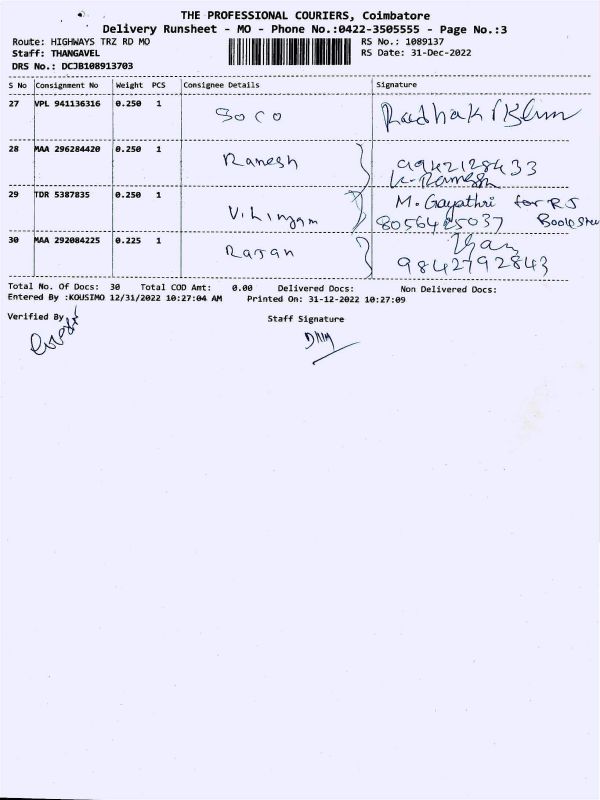 THE PROFESSIONAL COURIERS, Coimbatore
Delivery Runsheet - MO - Phone No.:0422-3505555 - Page No.:3
Route: HIGHWAYS TRZ RD MO
RS No.: 1089137
Staff: THANGAVEL
RS Date: 31-Dec-2022
DRS No.: DCJB108913703
S No Consignment No Weight PCS Consignee Details Signature
27 VPL 941136316 0.250 1 SOCO
28 MAA 296284420 0.250 1 Ramesh 9942128433
K. Ramesh
29 TDR 5387835 0.250 1 M. Gayathri for RJ
8056425037
30 MAA 292084225 0.225 1 Rajan
9842792843
Total No. Of Docs: 30 Total COD Amt: 0.00 Delivered Docs: Non Delivered Docs:
Entered By :KOUSIMO 12/31/2022 10:27:04 AM Printed On: 31-12-2022 10:27:09
Verified By
Staff Signature